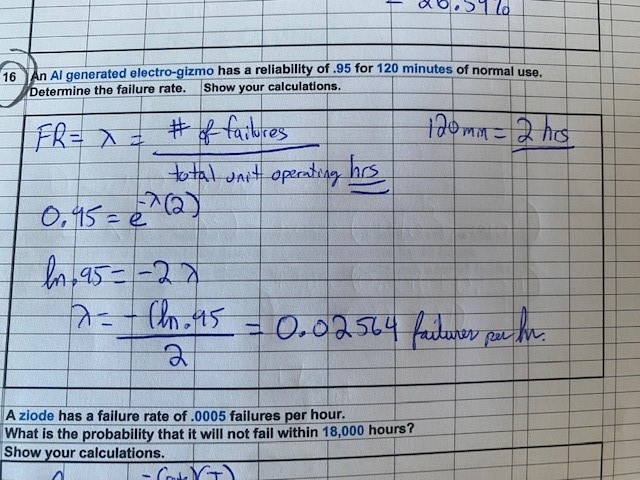 = 26.59%
16 An AI generated electro-gizmo has a reliability of .95 for 120 minutes of normal use.
Determine the failure rate. Show your calculations.
FR = λ = # of failures 120 min = 2 hrs
total unit operating hrs
0.95 = e^-λ(2)
ln .95 = -2λ
λ = -(ln .95 = 0.02564 failures per hr.
2
A ziode has a failure rate of .0005 failures per hour.
What is the probability that it will not fail within 18,000 hours?
Show your calculations.